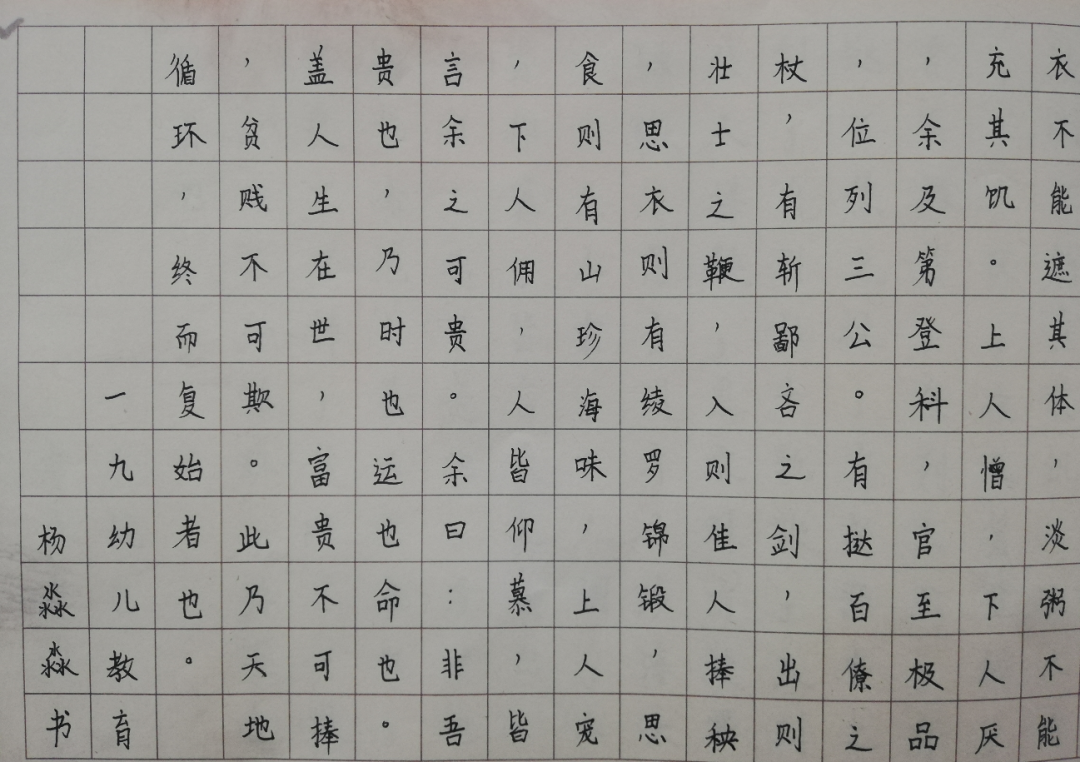 衣不能遮其体，淡粥不能
充其饥。上人憎，下人厌
，余及第登科，官至极品
，位列三公。有挞百僚之
杖，有斩鄙吝之剑，出则
壮士之鞭，入则佳人捧秧
，思衣则有绫罗锦锻，思
食则有山珍海味，上人宠
，下人佣，人皆仰慕，皆
言余之可贵。余曰：非吾
贵也，乃时也运也命也。
盖人生在世，富贵不可捧
，贫贱不可欺。此乃天地
循环，终而复始者也。
一九幼儿教育
杨淼淼书